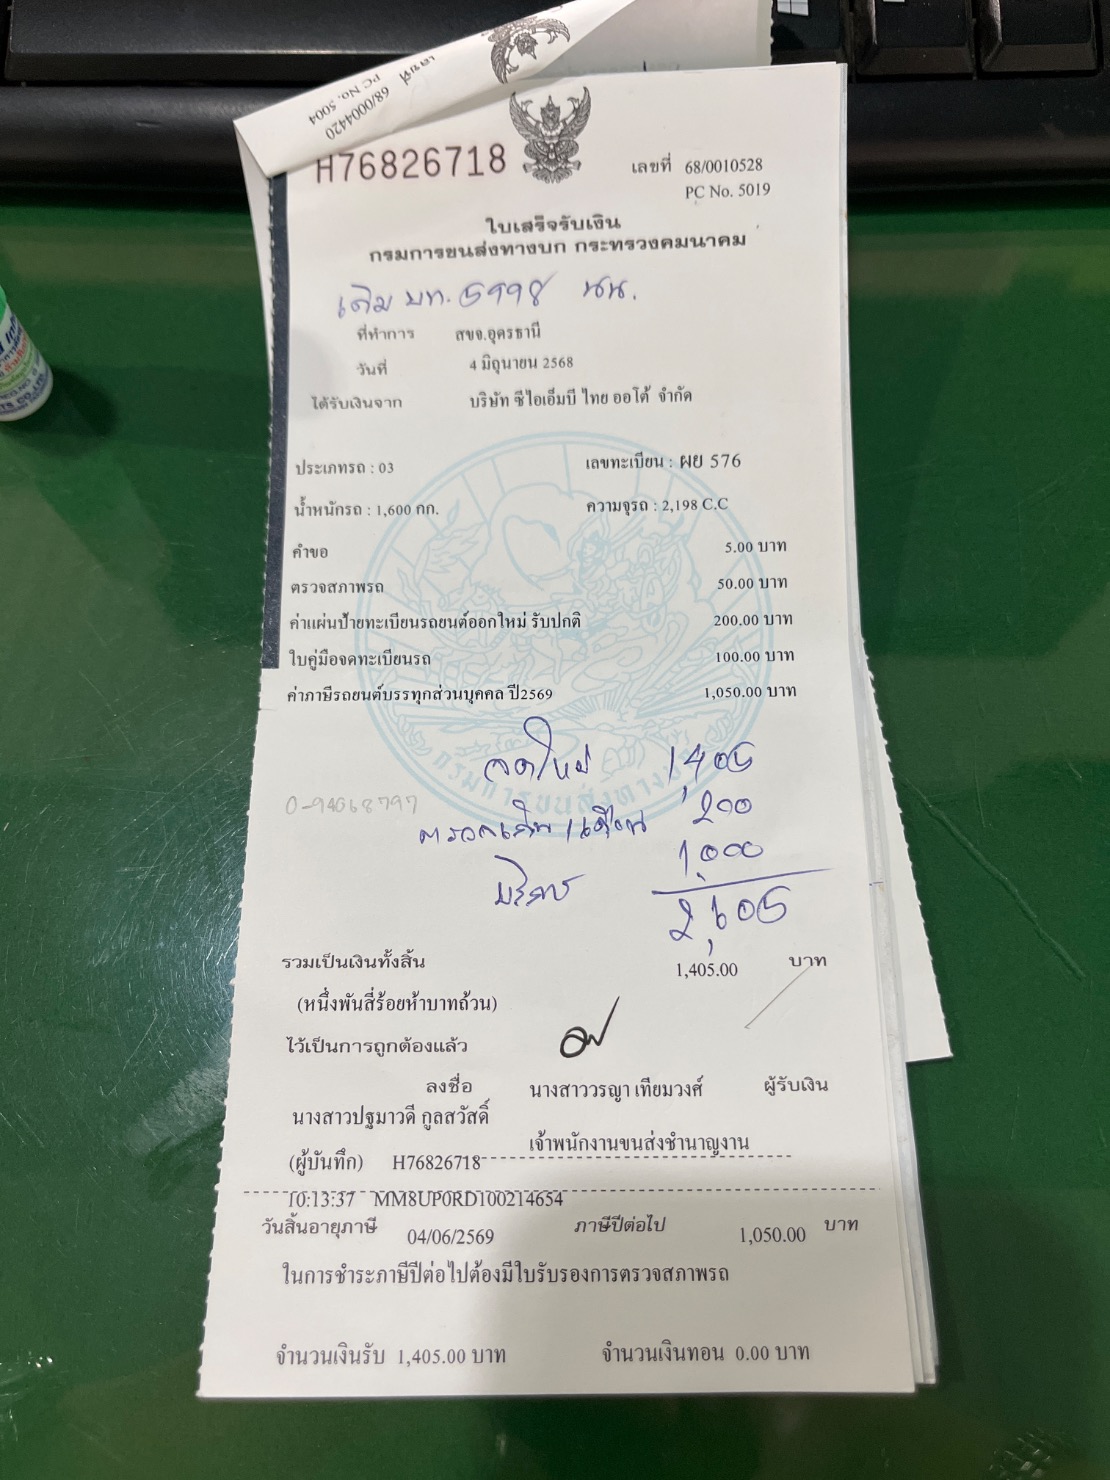 เลขที่ 68/0004420
PC No. 5004
H76826718
เลขที่ 68/0010528
PC No. 5019
ใบเสร็จรับเงิน
กรมการขนส่งทางบก กระทรวงคมนาคม
เดิม บท. 5998 นน.
ที่ทำการ สขจ.อุดรธานี
วันที่ 4 มิถุนายน 2568
ได้รับเงินจาก บริษัท ซีไอเอ็มบี ไทย ออโต้ จำกัด
ประเภทรถ : 03 เลขทะเบียน : ผย 576
น้ำหนักรถ : 1,600 กก. ความจุรถ : 2,198 C.C
คำขอ 5.00 บาท
ตรวจสภาพรถ 50.00 บาท
ค่าแผ่นป้ายทะเบียนรถยนต์ออกใหม่ รับปกติ 200.00 บาท
ใบคู่มือจดทะเบียนรถ 100.00 บาท
ค่าภาษีรถยนต์บรรทุกส่วนบุคคล ปี2569 1,050.00 บาท
จดใหม่ 1,405
200
1,000
บริการ
2,605
กรมการขนส่งทางบก
รวมเป็นเงินทั้งสิ้น 1,405.00 บาท
(หนึ่งพันสี่ร้อยห้าบาทถ้วน)
ไว้เป็นการถูกต้องแล้ว
ลงชื่อ นางสาววรญา เทียมวงศ์ ผู้รับเงิน
นางสาวปฐมาวดี กูลสวัสดิ์
เจ้าพนักงานขนส่งชำนาญงาน
(ผู้บันทึก) H76826718
10:13:37 MM8UP0RD100214654
วันสิ้นอายุภาษี 04/06/2569 ภาษีปีต่อไป 1,050.00 บาท
ในการชำระภาษีปีต่อไปต้องมีใบรับรองการตรวจสภาพรถ
จำนวนเงินรับ 1,405.00 บาท จำนวนเงินทอน 0.00 บาท